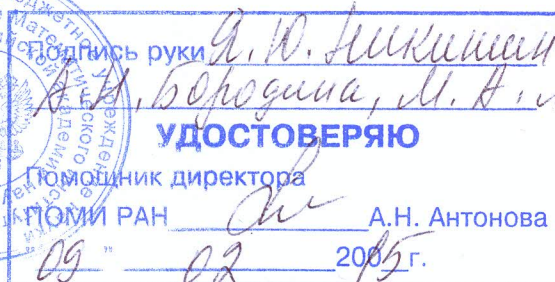 Подпись руки Я. Ю. Никитин
А. Н. Бородина, М. А.
УДОСТОВЕРЯЮ
Помощник директора
ПОМИ РАН А.Н. Антонова
09 " 02 2015 г.